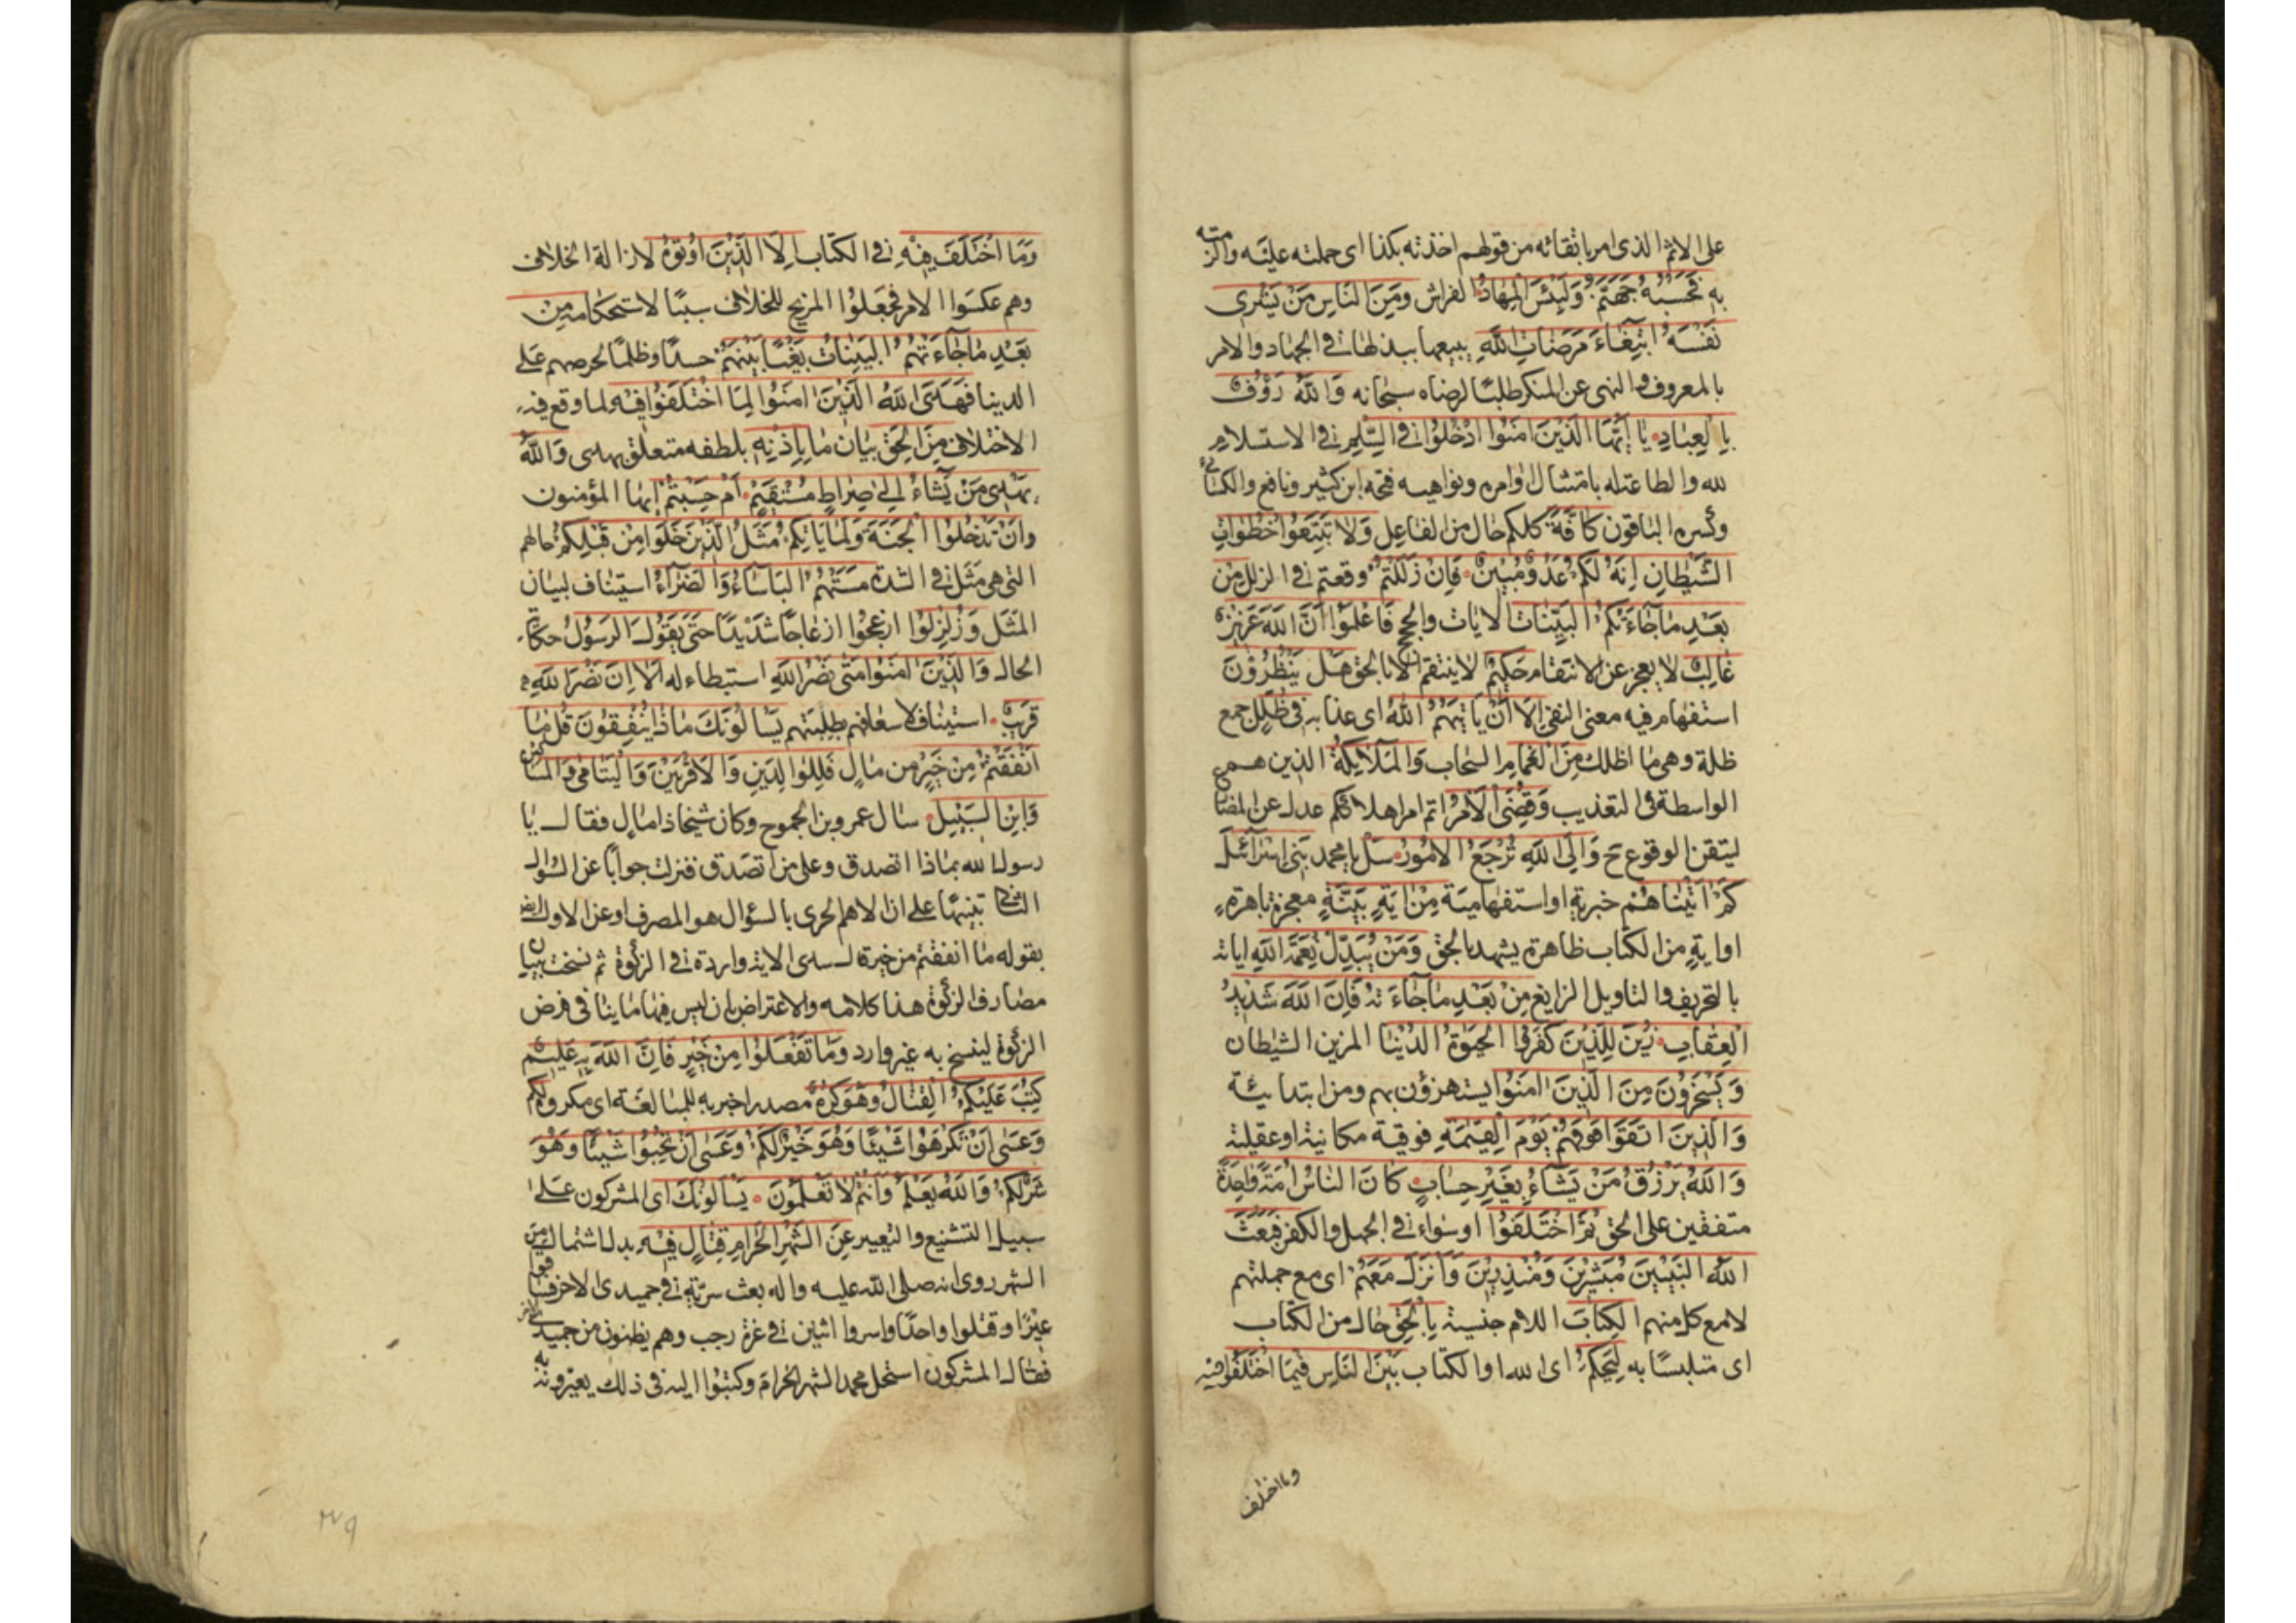 على الاثم الذى امر باتقائه من قولهم اخذته بكذا اى حملته عليه والزمته
به فَحَسْبُهُ جَهَنَّمُ وَلَبِئْسَ الْمِهَادُ الفراش ومِنَ النَّاسِ مَنْ يَشْرِى
نَفْسَهُ ابْتِغَاءَ مَرْضَاتِ اللَّهِ يبيعها ببذلها فى الجهاد والامر
بالمعروف والنهى عن المنكر طلبًا لرضاه سبحانه وَاللَّهُ رَؤُفٌ
بِالْعِبَادِ يَا أَيُّهَا الَّذِينَ امَنُوا ادْخُلُوا فى السِّلْمِ فى الاستسلام
لله والطاعة له بامتثال اوامره ونواهيه فتحه ابن كثير ونافع والكسائى
وكسره الباقون كَافَّةً كلكم حال من الفاعل وَلَا تَتَّبِعُوا خُطُوَاتِ
الشَّيْطَانِ إِنَّهُ لَكُمْ عَدُوٌّ مُبِينٌ فَإِنْ زَلَلْتُمْ وقعتم فى الزلل مِنْ
بَعْدِ مَا جَاءَتْكُمُ الْبَيِّنَاتُ الايات والحجج فَاعْلَمُوا أَنَّ اللَّهَ عَزِيزٌ
غالب لا يعجز عن الانتقام حَكِيمٌ لا ينتقم الا بالحق هَلْ يَنْظُرُونَ
استفهام فيه معنى النفى إِلَّا أَنْ يَاتِيَهُمُ اللَّهُ اى عذابه فِى ظُلَلٍ جمع
ظلة وهى ما اظلك مِنَ الْغَمَامِ السحاب وَالْمَلَائِكَةُ الذين هم
الواسطة فى التعذيب وَقُضِىَ الْأَمْرُ اتم امر اهلاككم عدل عن المضارع
ليتقن الوقوع ح وَإِلَى اللَّهِ تُرْجَعُ الْأُمُورُ سَلْ يا محمد بَنِى إِسْرَائِيلَ
كَمْ اتَيْنَاهُمْ خبرية او استفهامية مِنْ ايَةٍ بَيِّنَةٍ معجزة باهرة
او اية من الكتاب ظاهرة يشهد بالحق وَمَنْ يُبَدِّلْ نِعْمَةَ اللَّهِ اياته
بالتحريف والتاويل الزايغ مِنْ بَعْدِ مَا جَاءَتْهُ فَإِنَّ اللَّهَ شَدِيدُ
الْعِقَابِ زُيِّنَ لِلَّذِينَ كَفَرُوا الْحَيٰوةُ الدُّنْيَا المزين الشيطان
وَيَسْخَرُونَ مِنَ الَّذِينَ امَنُوا يستهزؤن بهم ومن ابتدائية
وَالَّذِينَ اتَّقَوْا فَوْقَهُمْ يَوْمَ الْقِيٰمَةِ فوقية مكانية او عقلية
وَاللَّهُ يَرْزُقُ مَنْ يَشَاءُ بِغَيْرِ حِسَابٍ كَانَ النَّاسُ أُمَّةً وَاحِدَةً
متفقين على الحق ثُمَّ اخْتَلَفُوا او سواء فى الجهل والكفر فَبَعَثَ
اللَّهُ النَّبِيِّينَ مُبَشِّرِينَ وَمُنْذِرِينَ وَأَنْزَلَ مَعَهُمُ اى مع جملتهم
لا مع كل منهم الْكِتَابَ اللام جنسية بِالْحَقِّ حال من الكتاب
اى متلبسًا به لِيَحْكُمَ اى الله او الكتاب بَيْنَ النَّاسِ فِيمَا اخْتَلَفُوا فِيهِ
وما اختلف
وَمَا اخْتَلَفَ فِيْهِ فى الكتاب إِلَّا الَّذِيْنَ أُوتُوهُ لازالة الخلاف
وهم عكسوا الامر فجعلوا المزيح للخلاف سببًا لاستحكامه مِنْ
بَعْدِ مَا جَاءَتْهُمُ الْبَيِّنَاتُ بَغْيًا بَيْنَهُمْ حسدًا وظلمًا لحرصهم على
الدنيا فَهَدَى اللَّهُ الَّذِيْنَ امَنُوا لِمَا اخْتَلَفُوا فِيْهِ لما وقع فيه
الاختلاف مِنَ الْحَقِّ بيان ما بِإِذْنِهِ بلطفه متعلق بهدى وَاللَّهُ
يَهْدِى مَنْ يَشَاءُ إِلَى صِرَاطٍ مُسْتَقِيْمٍ أَمْ حَسِبْتُمْ ايها المؤمنون
وأَنْ تَدْخُلُوا الْجَنَّةَ وَلَمَّا يَاتِكُمْ مَثَلُ الَّذِيْنَ خَلَوْا مِنْ قَبْلِكُمْ حالهم
التى هى مثل فى الشدة مَسَّتْهُمُ الْبَأْسَاءُ وَالضَّرَّاءُ استيناف لبيان
المثل وَزُلْزِلُوا ازعجوا ازعاجًا شديدًا حَتَّى يَقُولَ الرَّسُوْلُ حكاية
الحال وَالَّذِيْنَ امَنُوا مَتَى نَصْرُ اللَّهِ استبطاء له أَلَا إِنَّ نَصْرَ اللَّهِ
قَرِيبٌ استيناف لاسعافهم بطلبتهم يَسْألُوْنَكَ مَا ذَا يُنْفِقُونَ قُلْ مَا
أَنْفَقْتُمْ مِنْ خَيْرٍ من مال فَلِلْوَالِدَيْنِ وَالْأَقْرَبِيْنَ وَالْيَتَامَى وَالْمَسَاكين
وَابْنِ السَّبِيْلِ سال عمرو بن الجموح وكان شيخا ذا مال فقال يا
رسول الله بماذا اتصدق وعلى من اتصدق فنزلت جوابًا عن السؤال
الثانى تنبيهًا على ان الاهم الحرى بالسؤال هو المصرف او عن الاول ايضا
بقوله ما انفقتم من خير السدى الاية واردة فى الزكوة ثم نسخت ببيان
مصارف الزكوة هذا كلامه والاعتراض بان ليس فيها ما ينافى فرض
الزكوة لينسخ به غير وارد وَمَا تَفْعَلُوْا مِنْ خَيْرٍ فَإِنَّ اللَّهَ بِهِ عَلِيْمٌ
كُتِبَ عَلَيْكُمُ الْقِتَالُ وَهُوَ كُرْهٌ مصدر اخبر به للمبالغة اى مكروه لَكُمْ
وَعَسَى أَنْ تَكْرَهُوْا شَيْئًا وَهُوَ خَيْرٌ لَكُمْ وَعَسَى أَنْ تُحِبُّوا شَيْئًا وَهُوَ
شَرٌّ لَكُمْ وَاللَّهُ يَعْلَمُ وَأَنْتُمْ لَا تَعْلَمُوْنَ يَسْأَلُوْنَكَ اى المشركون على
سبيل التشنيع والتعيير عَنِ الشَّهْرِ الْحَرَامِ قِتَالٍ فِيْهِ بدل اشتمال من
الشهر روى انه صلى الله عليه واله بعث سرية فى جميدى الاخر فساقوا
عيرًا وقتلوا واحدًا واسروا اثنين فى غرة رجب وهم يظنون من جميدى
فقال المشركون استحل محمد الشهر الحرام وكتبوا اليه فى ذلك يعيرونه به
۳۷۹